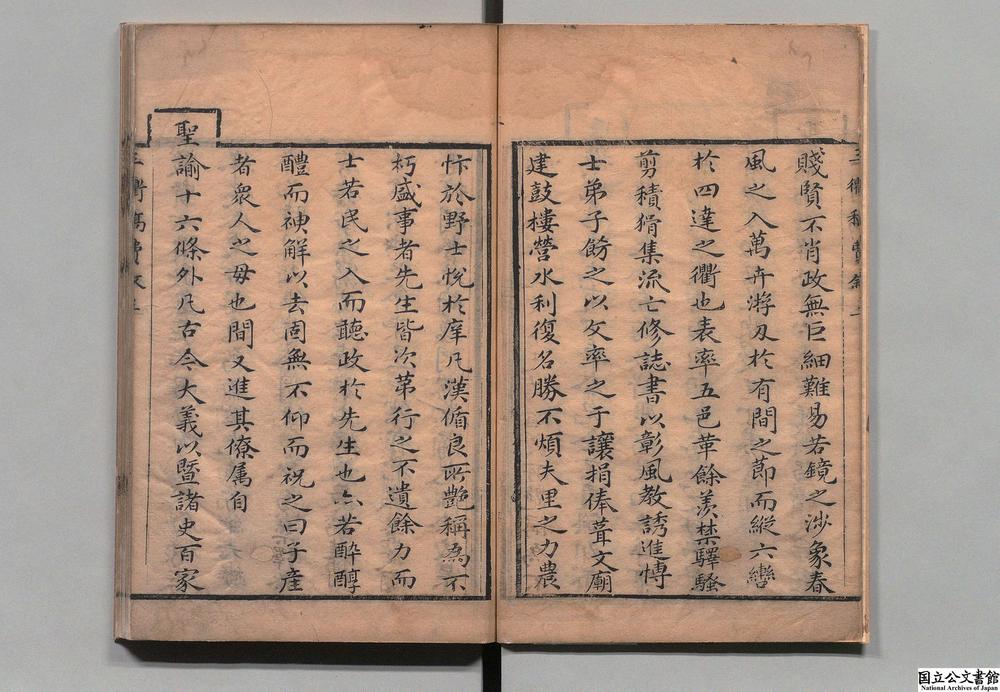 賤賢不肖政無巨細難易若鏡之涉象春
風之入萬卉游刃於有間之節而縱六轡
於四達之衢也表率五邑革餘羨禁驛騷
剪積猾集流亡修誌書以彰風教誘進博
士弟子飭之以文率之于讓捐俸葺文廟
建鼓樓營水利復名勝不煩夫里之力農
忭於野士悅於庠凡漢循良所艷稱為不
朽盛事者先生皆次苐行之不遺餘力而
士若民之入而聽政於先生也亦若酔醇
醴而神解以去固無不仰而祝之曰子產
者衆人之母也間又進其僚属自
聖諭十六條外凡古今大義以暨諸史百家
国立公文書館
National Archives of Japan